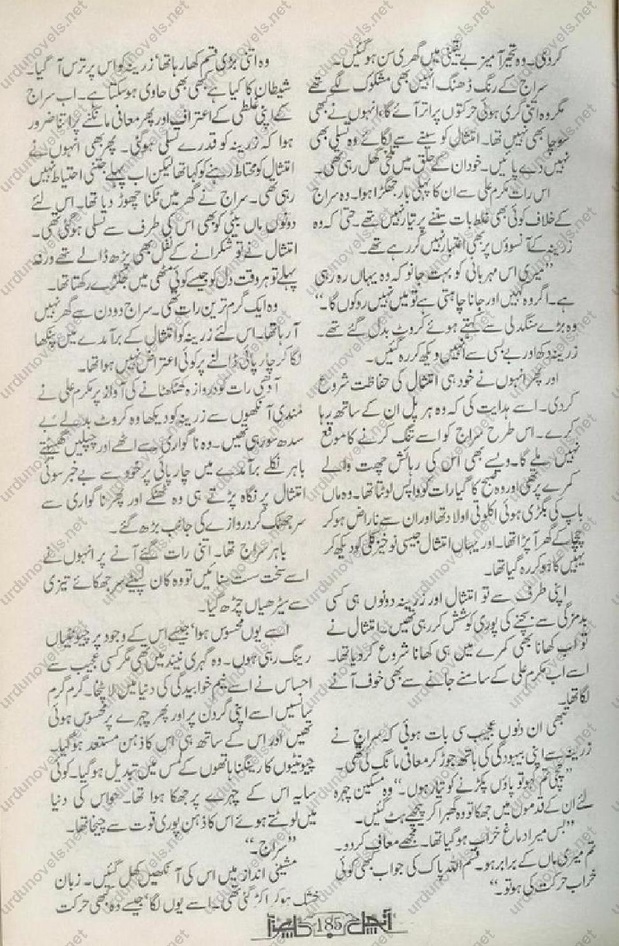 کر دی۔ وہ تحیر آمیز بے یقینی میں گھری سن ہو گئیں۔
سراج کے رنگ ڈھنگ انہیں بھی مشکوک لگے تھے
مگر وہ اتنی گری ہوئی حرکتوں پر اتر آئے گا، انہوں نے بھی
سوچا بھی نہیں تھا۔ امتثال کو سینے سے لگائے وہ تسلی بھی
نہیں دے پائیں۔ خود ان کے حلق میں تلخی گھل رہی تھی۔
اس رات مکرم علی سے ان کا پہلی بار جھگڑا ہوا۔ وہ سراج
کے خلاف کوئی بھی غلط بات سننے پر تیار نہیں تھے۔ حتیٰ کہ وہ
زرینہ کے آنسوؤں پر بھی اعتبار نہیں کر رہے تھے۔
”میری اس مہربانی کو بہت جانو کہ وہ یہاں رہ رہی
ہے۔ اگر وہ کہیں اور جانا چاہتی ہے تو میں نہیں روکوں گا۔“
وہ بڑے سنگدلی سے کہتے ہوئے کروٹ بدل گئے تھے۔
زرینہ دکھ اور بے بسی سے انہیں دیکھ کر رہ گئیں۔
اور پھر انہوں نے خود ہی امتثال کی حفاظت شروع
کر دی۔ اسے ہدایت کی کہ وہ ہر پل ان کے ساتھ رہا
کرے۔ اس طرح سراج کو اسے تنگ کرنے کا موقع
نہیں ملے گا۔ ویسے بھی اس کی رہائش چھت والے
کمرے پر تھی اور وہ صبح کا گیا رات کو واپس لوٹتا تھا۔ وہ ماں
باپ کی بگڑی ہوئی اکلوتی اولاد تھا اور ان سے ناراض ہو کر
چچا کے گھر آ پڑا تھا۔ اور یہاں امتثال جیسی نوخیز کلی کو دیکھ کر
یہیں کا ہو کر رہ گیا تھا۔
اپنی طرف سے تو امتثال اور زرینہ دونوں ہی کسی
بدمزگی سے بچنے کی پوری کوشش کر رہی تھیں۔ امتثال نے
تو اب کھانا بھی کمرے میں ہی کھانا شروع کر دیا تھا۔
اسے اب مکرم علی کے سامنے جانے سے بھی خوف آنے
لگا تھا۔
تبھی ان دنوں عجیب سی بات ہوئی کہ سراج نے
زرینہ سے اپنی بیہودگی کی ہاتھ جوڑ کر معافی مانگ لی تھی۔
”چچی تم کہو تو پاؤں پکڑنے کو تیار ہوں۔“ وہ مسکین چہرہ
لئے ان کے قدموں میں جھکا تو وہ گھبرا کر پیچھے ہٹ گئیں۔
”بس میرا دماغ خراب ہو گیا تھا۔ مجھے معاف کر دو۔
تم میری ماں کے برابر ہو۔ قسم اللہ پاک کی جو اب بھی کوئی
خراب حرکت کی ہو تو۔“
وہ اتنی بڑی قسم کھا رہا تھا، زرینہ کو اس پر ترس آ گیا۔
شیطان کا کیا ہے کبھی بھی حاوی ہو سکتا ہے۔ اب سراج
کے اپنی غلطی کے اعتراف اور پھر معافی مانگنے پر اتنا ضرور
ہوا کہ زرینہ کو قدرے تسلی ہو گئی۔ پھر بھی انہوں نے
امتثال کو محتاط رہنے کو کہا تھا لیکن اب پہلے جتنی احتیاط نہیں
رہی تھی۔ سراج نے گھر میں ٹکنا چھوڑ دیا تھا۔ اس لئے
دونوں ماں بیٹی کو بھی اس کی طرف سے تسلی ہو گئی تھی۔
امتثال نے تو شکرانے کے نفل بھی پڑھ ڈالے تھے ورنہ
پہلے تو ہر وقت دل کو جیسے کوئی مٹھی میں جکڑے رکھتا تھا۔
وہ ایک گرم ترین رات تھی۔ سراج دو دن سے گھر نہیں
آ رہا تھا۔ اس لئے زرینہ کو امتثال کے برآمدے میں پنکھا
لگا کر چارپائی ڈالنے پر کوئی اعتراض نہیں ہوا تھا۔
آدھی رات کو دروازہ کھٹکھٹانے کی آواز پر مکرم علی نے
مندی آنکھوں سے زرینہ کو دیکھا وہ کروٹ بدلے بے
سدھ سو رہی تھیں۔ وہ ناگواری سے اٹھے اور چپلیں گھسیٹتے
باہر نکلے برآمدے میں چارپائی پر خود سے بے خبر سوئی
امتثال پر نگاہ پڑتے ہی وہ ٹھٹکے اور پھر ناگواری سے
سر جھٹک کر دروازے کی جانب بڑھ گئے۔
باہر سراج تھا۔ اتنی رات گئے آنے پر انہوں نے
اسے سخت ست سنائیں تو وہ کان لپیٹے سر جھکائے تیزی
سے سیڑھیاں چڑھ گیا۔
اسے یوں محسوس ہوا جیسے اس کے وجود پر چیونٹیاں
رینگ رہی ہوں۔ وہ گہری نیند میں تھی مگر کسی عجیب سے
احساس نے اسے نیم خوابیدگی کی دنیا میں لا پٹخا۔ گرم گرم
سانسیں اسے اپنی گردن پر اور پھر چہرے پر محسوس ہوئی
تھیں اور اس کے ساتھ ہی اس کا ذہن مستعد ہو گیا۔
چیونٹیوں کا رینگنا ہاتھوں کے لمس میں تبدیل ہو گیا۔ کوئی
سایہ اس کے چہرے پر جھکا ہوا تھا۔ حواس کی دنیا
میں لوٹتے ہوئے اس کا ذہن پوری قوت سے چیخا تھا۔
”سراج۔“
مشینی انداز میں اس کی آنکھیں کھل گئیں۔ زبان
خشک ہو کر اکڑ گئی تھی۔ اسے یوں لگا جیسے وہ بھی حرکت
آنچل 185
urdunovels.net